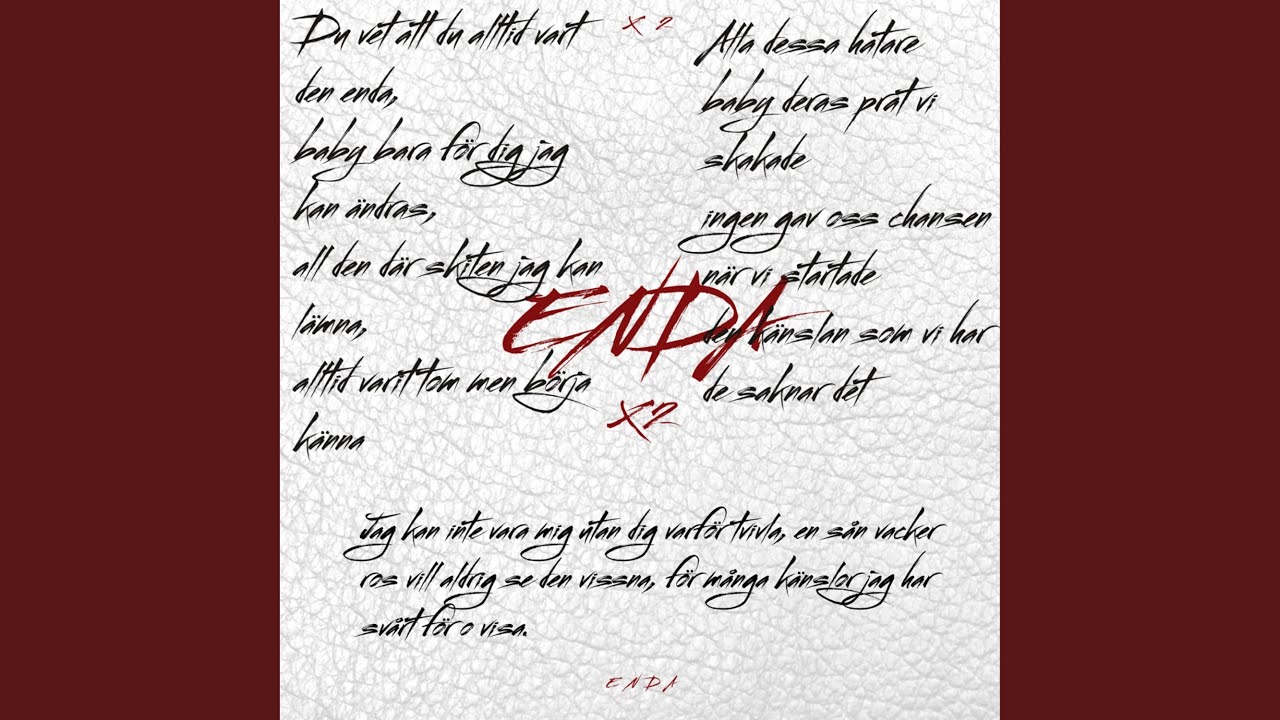 Du vet att du alltid vart
den enda,
baby bara för dig jag
kan ändras,
all den där skiten jag kan
lämna,
alltid varit tom men börja
känna
X 2
Alla dessa hatare
baby deras prat vi
skakade
ingen gav oss chansen
när vi startade
den känslan som vi har
de saknar det
ENDA
X2
Jag kan inte vara mig utan dig varför tvivla, en sån vacker
ros vill aldrig se den vissna, för många känslor jag har
svårt för o visa.
ENDA